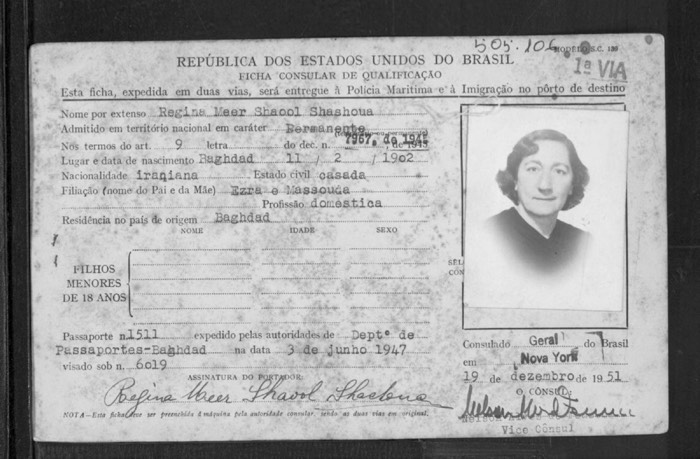 505.106
MODELO S.C. 139
1ª VIA
REPÚBLICA DOS ESTADOS UNIDOS DO BRASIL
FICHA CONSULAR DE QUALIFICAÇÃO
Esta ficha, expedida em duas vias, será entregue à Polícia Marítima e à Imigração no pôrto de destino
Nome por extenso Regina Meer Shaool Shashoua
Admitido em território nacional em caráter Permanente
Nos termos do art. 9 letra do dec. n. 7967, de 1945
Lugar e data de nascimento Baghdad 11 / 2 / 1902
Nacionalidade iraqiana Estado civil casada
Filiação (nome do Pai e da Mãe) Ezra e Massouda
Profissão domestica
Residência no país de origem Baghdad
NOME IDADE SEXO
FILHOS
MENORES
DE 18 ANOS
Passaporte n. 1511 expedido pelas autoridades de Deptº de
Passaportes-Baghdad na data 3 de junho 1947
visado sob n. 6019
ASSINATURA DO PORTADOR:
Regina Meer Shaool Shashoua
NOTA—Esta ficha deve ser preenchida à máquina pela autoridade consular, sendo as duas vias em original.
Consulado Geral do Brasil
em Nova York
19 de dezembro de 1951
O CÔNSUL:
Nelson
Vice Cônsul